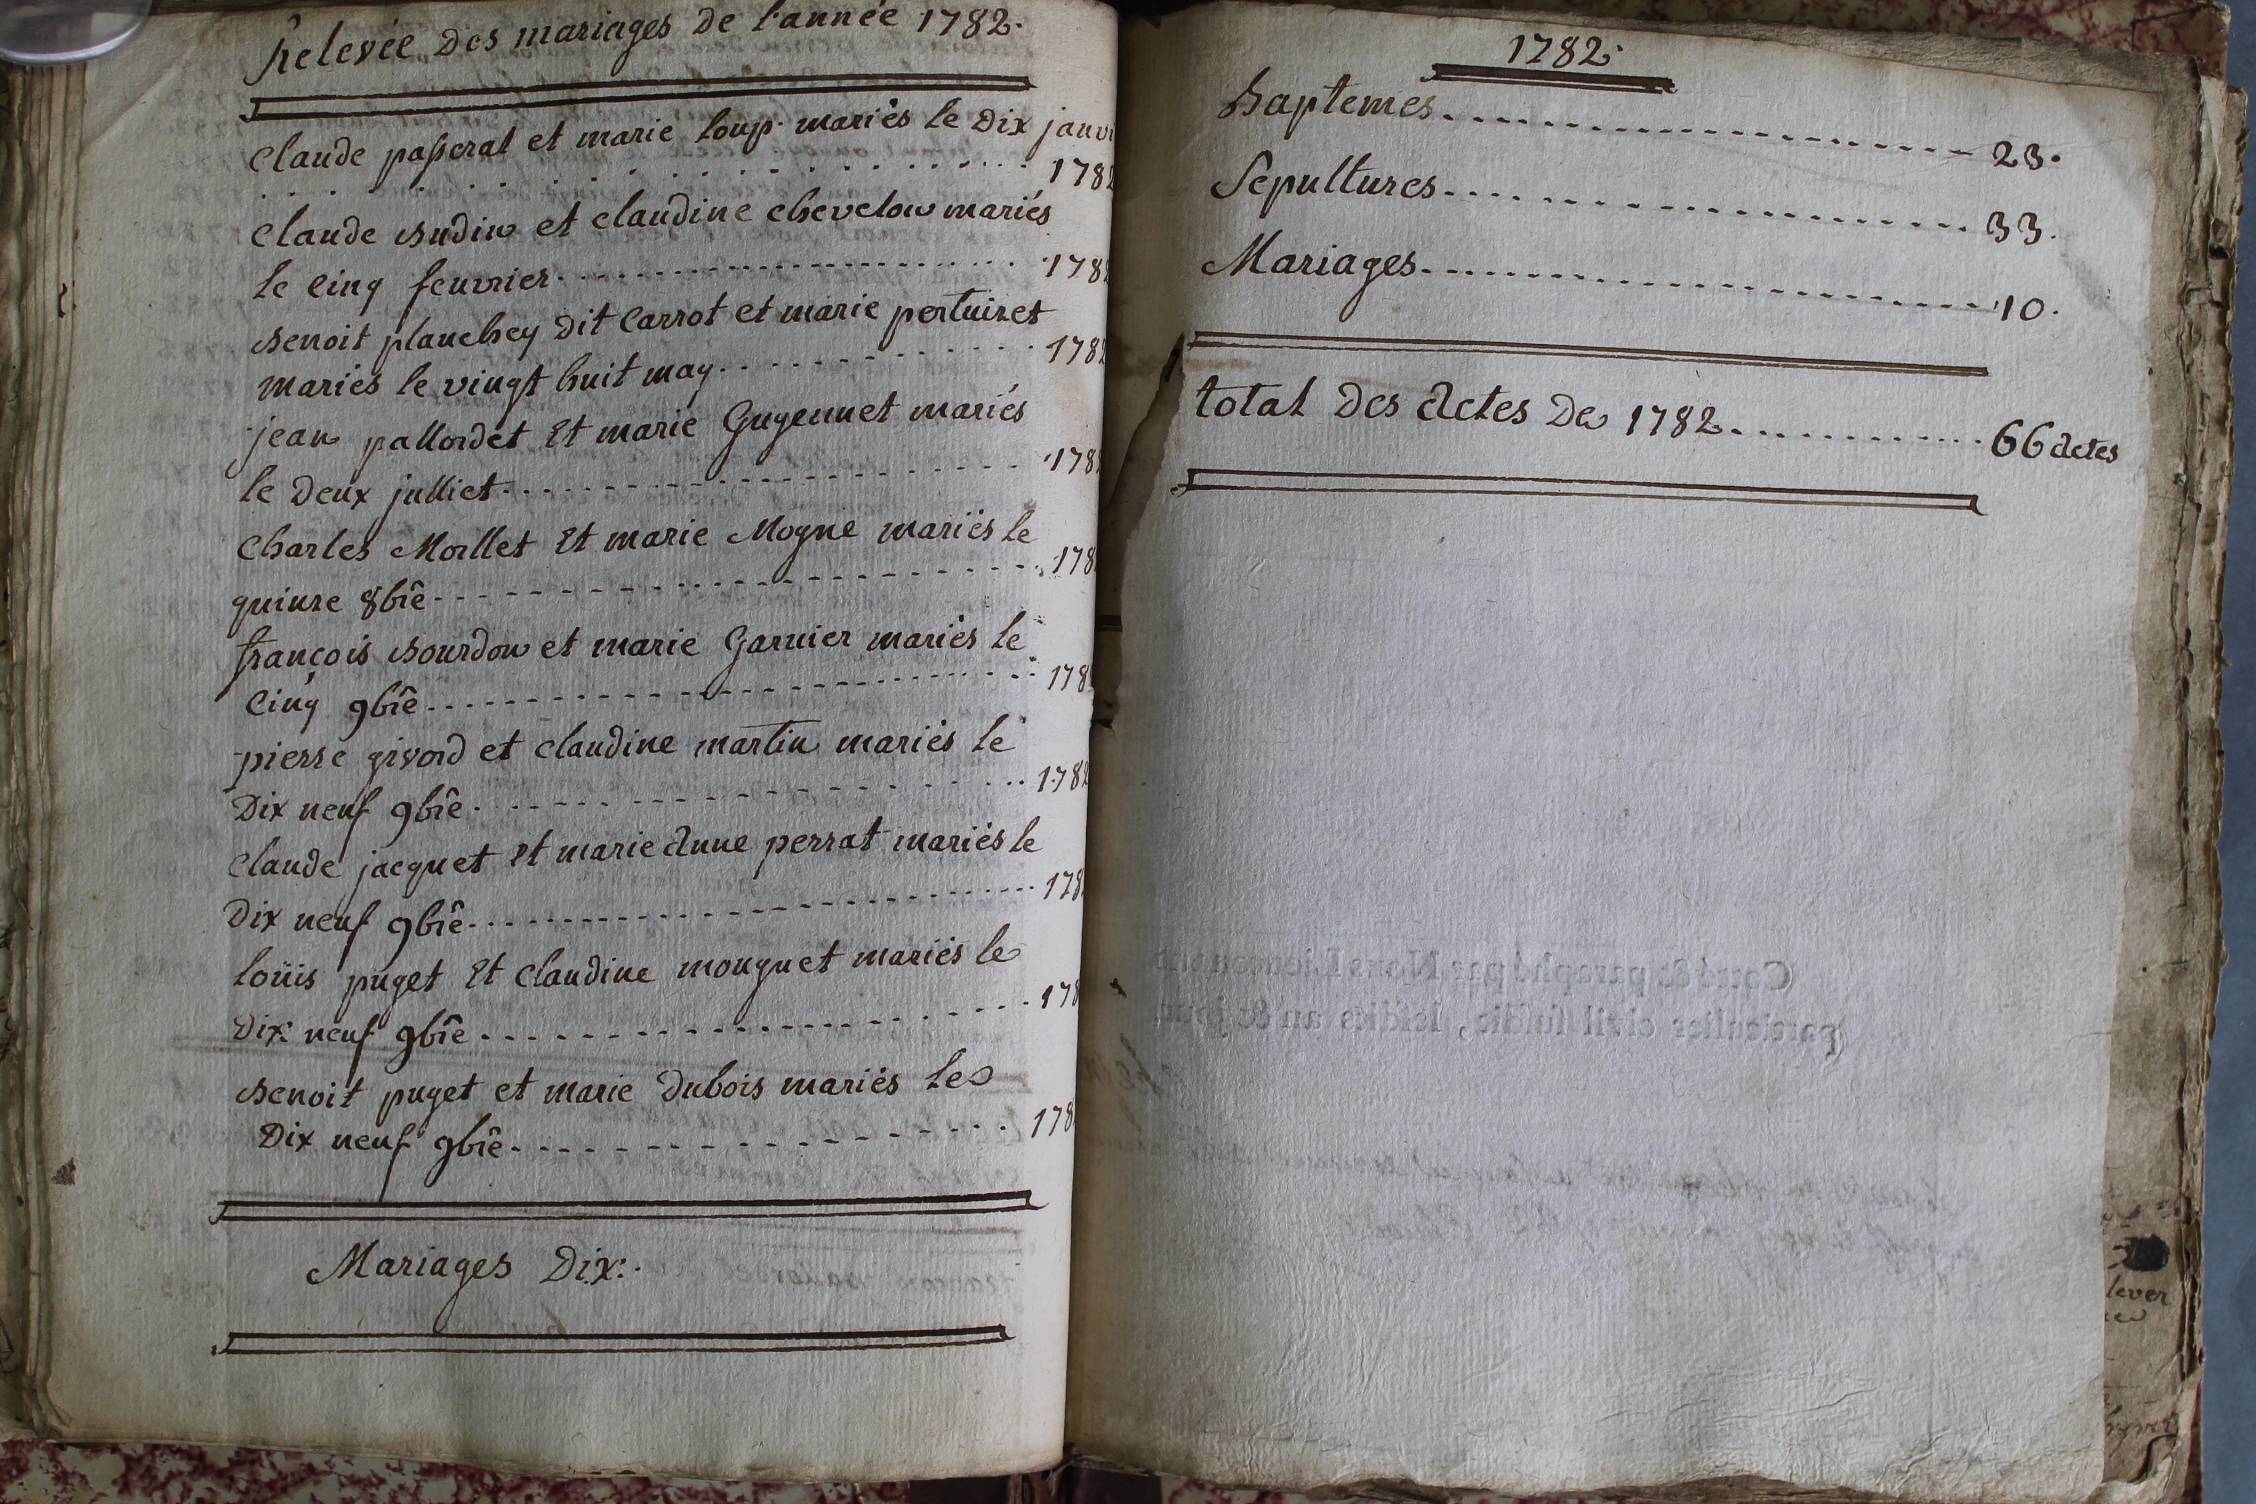 Relevée Des mariages De l'année 1782.
Claude passerat et marie loup. mariés le Dix janvi
1782
Claude Budin et claudine chevelou mariés
le cinq feuvrier 178
Benoit planchey dit Carrot et marie pertuiset
mariés le vingt huit may 178
jean pallordet Et marie Gugennet mariés
le Deux julliet 178
Charles Morllet Et marie Mogne mariés le
quinze 8brê 178
françois Bourdon et marie Garnier mariés le
Cinq 9brê 178
pierre givord et claudine martin mariés le
Dix neuf 9brê 1782
Claude jacquet Et marie Anne perrat mariés le
Dix neuf 9brê 178
loüis puget Et Claudine monguet mariés le
Dix neuf 9brê 178
Benoit puget et marie Dubois mariés le
Dix neuf 9brê 178
Mariages Dix.
1782.
Baptemes 23.
Sepultures 33.
Mariages 10.
total Des Actes De 1782 66 actes
Cotté & paraphé par Nous Lieutenant
particulier civil susdit, lesdits an & jour
lever